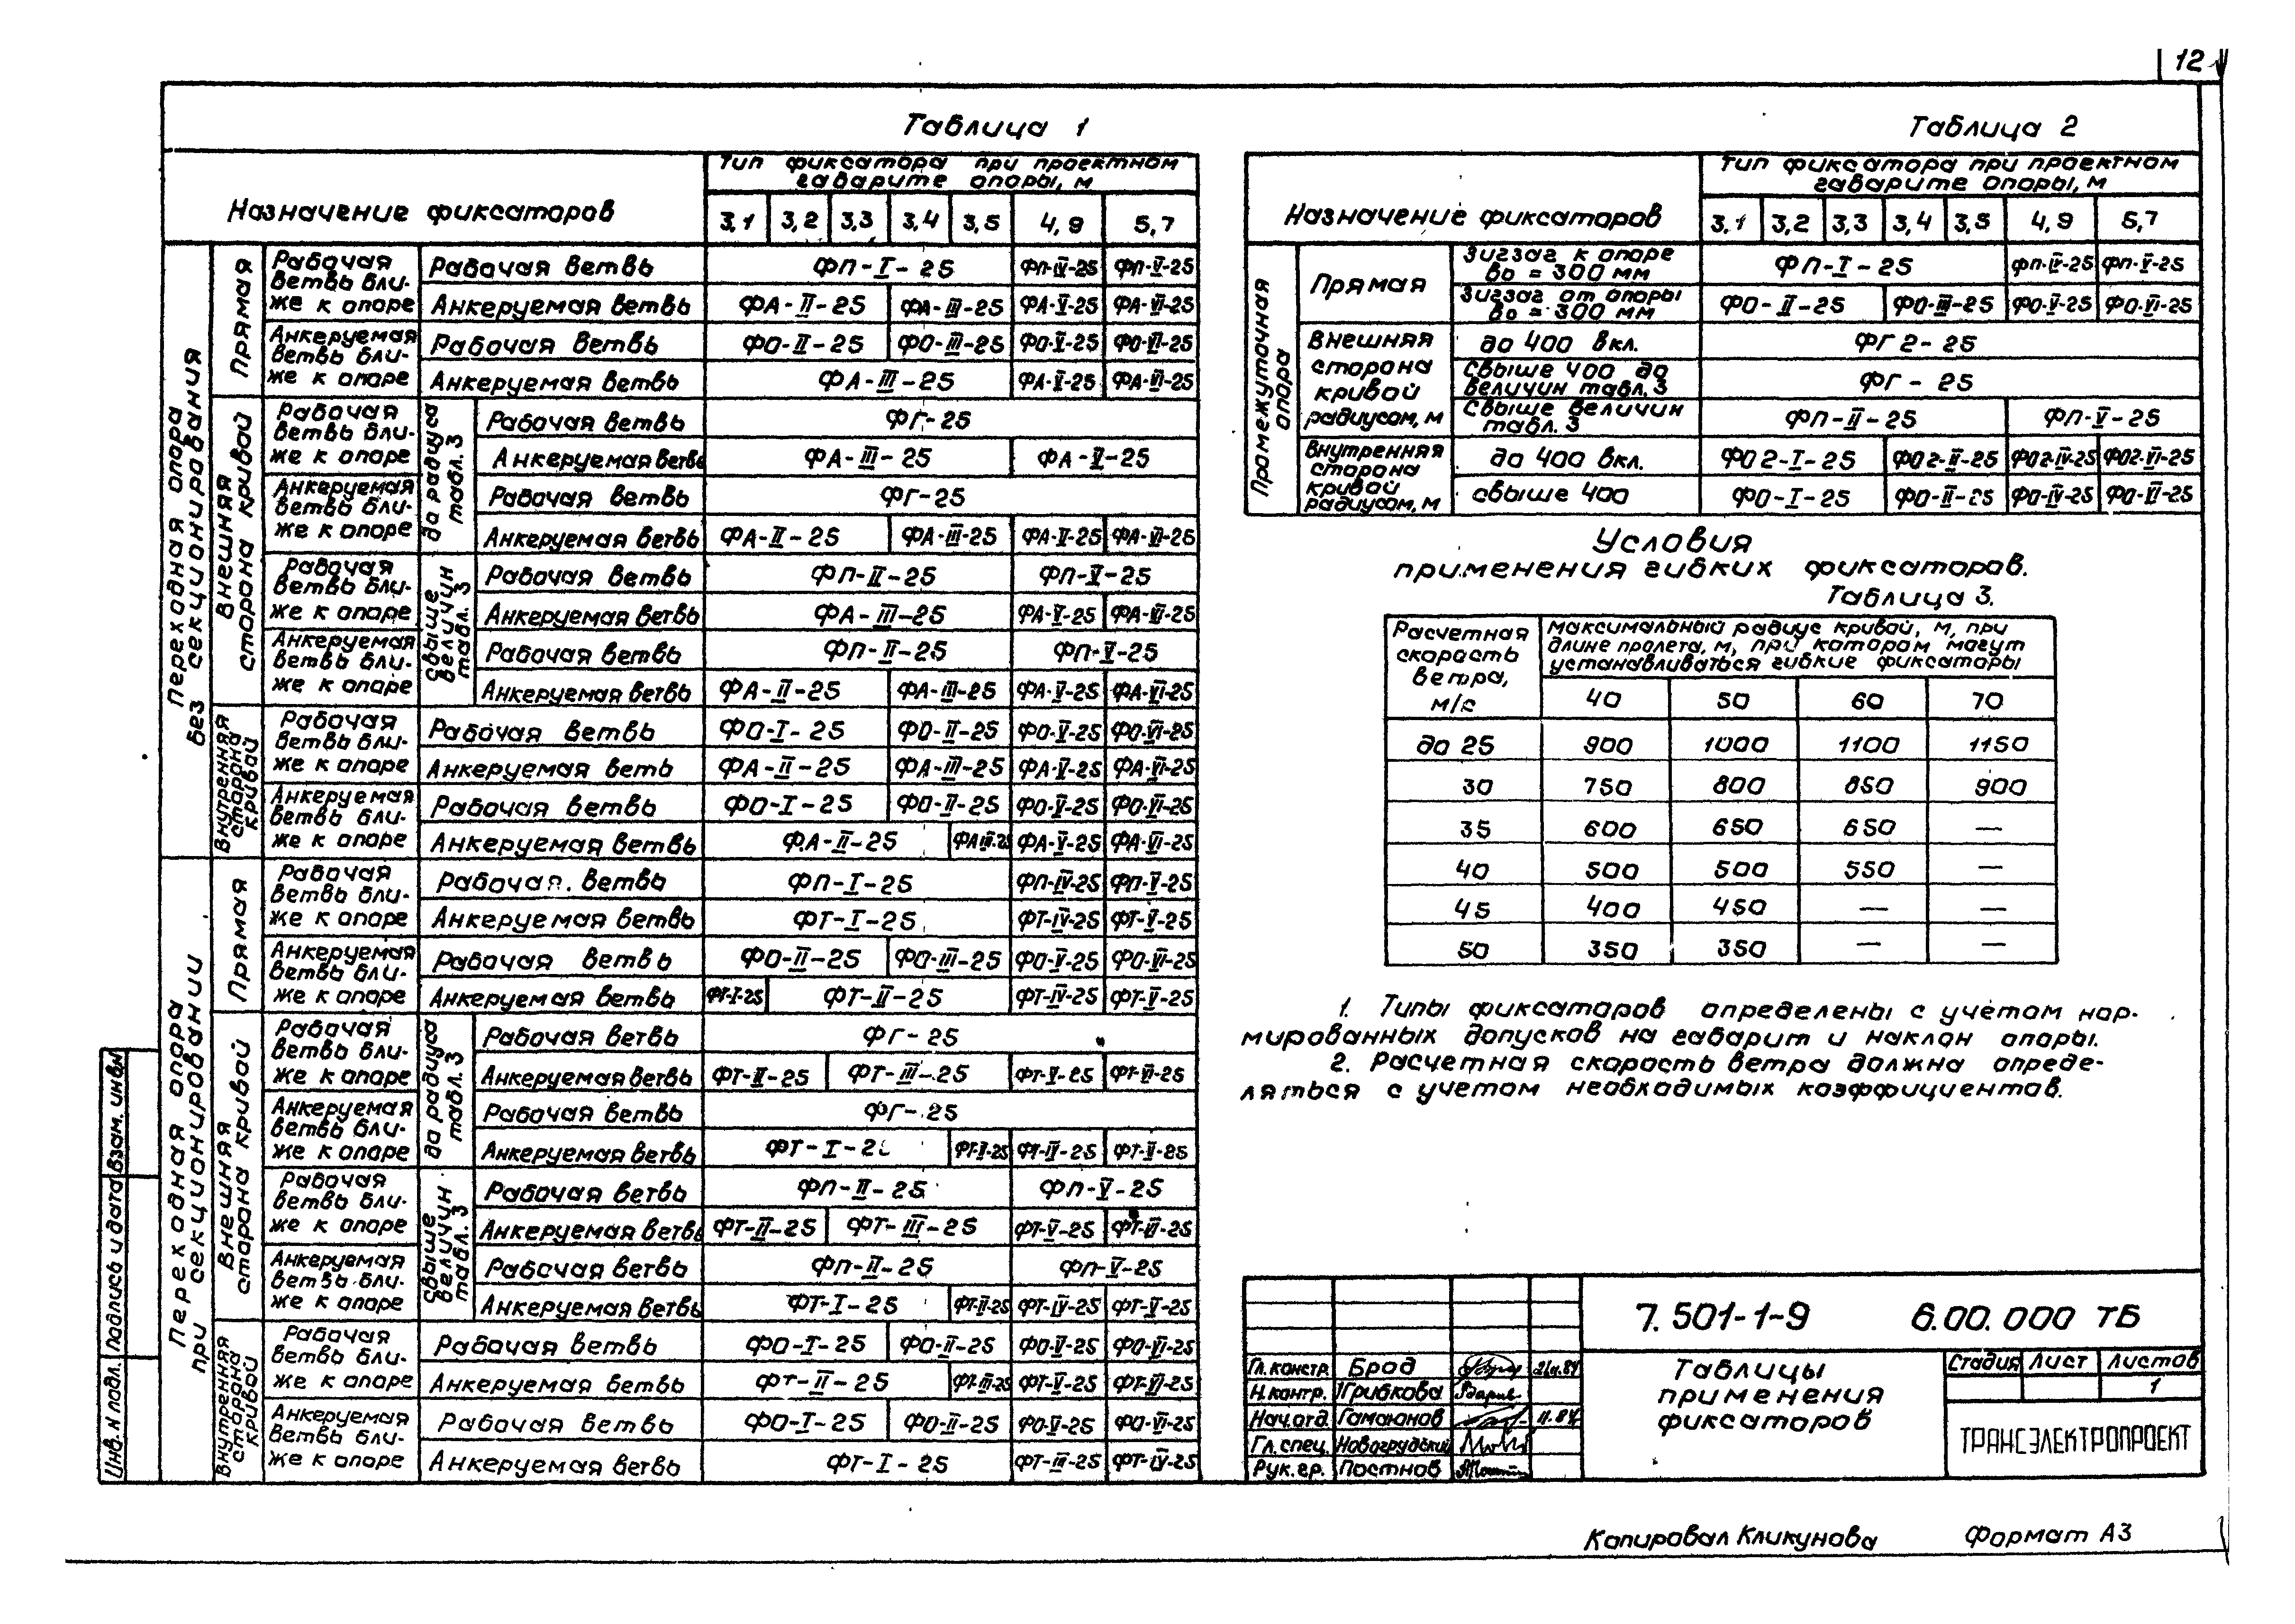 12
Таблица 1
Назначение фиксаторов
Тип фиксатора при проектном
габарите опоры, м
3,1 3,2 3,3 3,4 3,5 4,9 5,7
Переходная опора
без секционирования
Прямая
Рабочая
ветвь бли-
же к опоре
Рабочая ветвь ФП-I-25 ФП-IV-25 ФП-V-25
Анкеруемая ветвь ФА-II-25 ФА-III-25 ФА-V-25 ФА-VI-25
Анкеруемая
ветвь бли-
же к опоре
Рабочая ветвь ФО-II-25 ФО-III-25 ФО-V-25 ФО-VI-25
Анкеруемая ветвь ФА-III-25 ФА-V-25 ФА-VI-25
Внешняя
сторона кривой
до радиуса
табл. 3
Рабочая
ветвь бли-
же к опоре
Рабочая ветвь ФГ-25
Анкеруемая ветвь ФА-III-25 ФА-V-25
Анкеруемая
ветвь бли-
же к опоре
Рабочая ветвь ФГ-25
Анкеруемая ветвь ФА-II-25 ФА-III-25 ФА-V-25 ФА-VI-25
Свыше
величин
табл. 3
Рабочая
ветвь бли-
же к опоре
Рабочая ветвь ФП-II-25 ФП-V-25
Анкеруемая ветвь ФА-III-25 ФА-V-25 ФА-VI-25
Анкеруемая
ветвь бли-
же к опоре
Рабочая ветвь ФП-II-25 ФП-V-25
Анкеруемая ветвь ФА-II-25 ФА-III-25 ФА-V-25 ФА-VI-25
Внутренняя
сторона
кривой
Рабочая
ветвь бли-
же к опоре
Рабочая ветвь ФО-I-25 ФО-II-25 ФО-V-25 ФО-VI-25
Анкеруемая веть ФА-II-25 ФА-III-25 ФА-V-25 ФА-VI-25
Анкеруемая
ветвь бли-
же к опоре
Рабочая ветвь ФО-I-25 ФО-II-25 ФО-V-25 ФО-VI-25
Анкеруемая ветвь ФА-II-25 ФА-III-25 ФА-V-25 ФА-VI-25
Переходная опора
при секционировании
Прямая
Рабочая
ветвь бли-
же к опоре
Рабочая ветвь ФП-I-25 ФП-IV-25 ФП-V-25
Анкеруемая ветвь ФТ-I-25 ФТ-IV-25 ФТ-V-25
Анкеруемая
ветвь бли-
же к опоре
Рабочая ветвь ФО-II-25 ФО-III-25 ФО-V-25 ФО-VI-25
Анкеруемая ветвь ФТ-I-25 ФТ-II-25 ФТ-IV-25 ФТ-V-25
Внешняя
сторона кривой
до радиуса
табл. 3
Рабочая
ветвь бли-
же к опоре
Рабочая ветвь ФГ-25
Анкеруемая ветвь ФТ-II-25 ФТ-III-25 ФТ-V-25 ФТ-VI-25
Анкеруемая
ветвь бли-
же к опоре
Рабочая ветвь ФГ-25
Анкеруемая ветвь ФТ-I-25 ФТ-II-25 ФТ-IV-25 ФТ-V-25
Свыше
величин
табл. 3
Рабочая
ветвь бли-
же к опоре
Рабочая ветвь ФП-II-25 ФП-V-25
Анкеруемая ветвь ФТ-II-25 ФТ-III-25 ФТ-V-25 ФТ-VI-25
Анкеруемая
ветвь бли-
же к опоре
Рабочая ветвь ФП-II-25 ФП-V-25
Анкеруемая ветвь ФТ-I-25 ФТ-II-25 ФТ-IV-25 ФТ-V-25
Внутренняя
сторона
кривой
Рабочая
ветвь бли-
же к опоре
Рабочая ветвь ФО-I-25 ФО-II-25 ФО-V-25 ФО-VI-25
Анкеруемая ветвь ФТ-II-25 ФТ-III-25 ФТ-V-25 ФТ-VI-25
Анкеруемая
ветвь бли-
же к опоре
Рабочая ветвь ФО-I-25 ФО-II-25 ФО-V-25 ФО-VI-25
Анкеруемая ветвь ФТ-I-25 ФТ-III-25 ФТ-IV-25
Таблица 2
Назначение фиксаторов
Тип фиксатора при проектном
габарите опоры, м
3,1 3,2 3,3 3,4 3,5 4,9 5,7
Промежуточная
опора
Прямая
Зигзаг к опоре
во = 300 мм ФП-I-25 ФП-IV-25 ФП-V-25
Зигзаг от опоры
во = 300 мм ФО-II-25 ФО-III-25 ФО-V-25 ФО-VI-25
Внешняя
сторона
кривой
радиусом, м
до 400 вкл. ФГ2-25
Свыше 400 до
величин табл. 3 ФГ-25
Свыше величин
табл. 3 ФП-II-25 ФП-V-25
Внутренняя
сторона
кривой
радиусом, м
до 400 вкл. ФО2-I-25 ФО2-II-25 ФО2-IV-25 ФО2-VI-25
свыше 400 ФО-I-25 ФО-II-25 ФО-IV-25 ФО-VI-25
Условия
применения гибких фиксаторов.
Таблица 3.
Расчетная
скорость
ветра,
м/с
Максимальный радиус кривой, м, при
длине пролета, м, при котором могут
устанавливаться гибкие фиксаторы
40 50 60 70
до 25 900 1000 1100 1150
30 750 800 850 900
35 600 650 650 —
40 500 500 550 —
45 400 450 — —
50 350 350 — —
1. Типы фиксаторов определены с учетом нор-
мированных допусков на габарит и наклон опоры.
2. Расчетная скорость ветра должна опреде-
ляться с учетом необходимых коэффициентов.
7.501-1-9 6.00.000 ТБ
Гл. констр. Брод
Н. контр. Грибкова
Нач. отд. Гамаюнов 11.84
Гл. спец. Новогрудский
Рук. гр. Постнов
Таблицы
применения
фиксаторов
Стадия Лист Листов
1
ТРАНСЭЛЕКТРОПРОЕКТ
Инв. N подл. Подпись и дата Взам. инв. N
Копировал Кликунова Формат А3